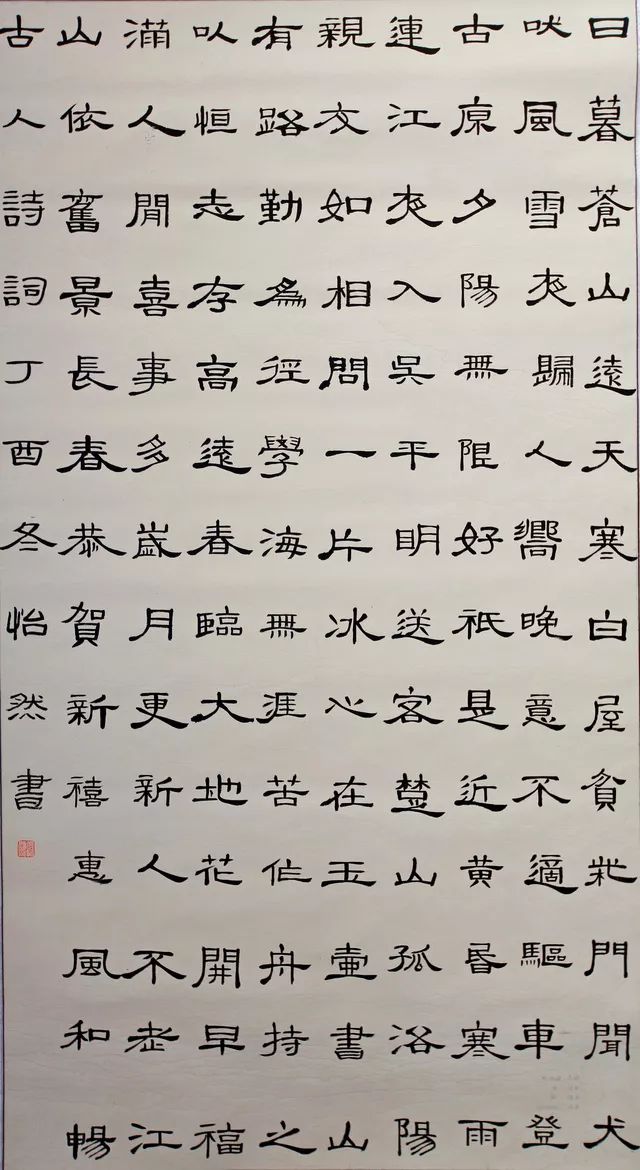 日暮蒼山遠天寒白屋貧柴門聞犬
吠風雪夜歸人嚮晚意不適驅車登
古原夕陽無限好祇是近黄昏寒雨
連江夜入吳平明送客楚山孤洛陽
親友如相問一片冰心在玉壺書山
有路勤為徑學海無涯苦作舟持之
以恒志存高遠春臨大地花開早福
滿人間喜事多歲月更新人不老江
山依舊景長春恭賀新禧惠風和暢
古人詩詞丁酉冬怡然書